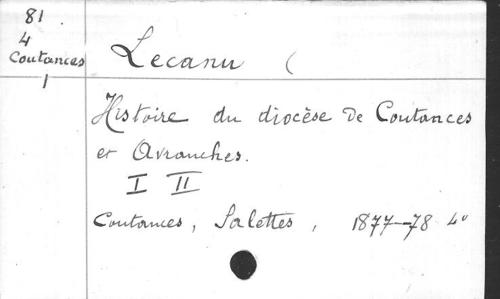 81
4
Coutances
1
Lecanu (
Histoire du diocèse de Coutances
et Avranches.
I II
Coutances, Salettes, 1877-78 4°